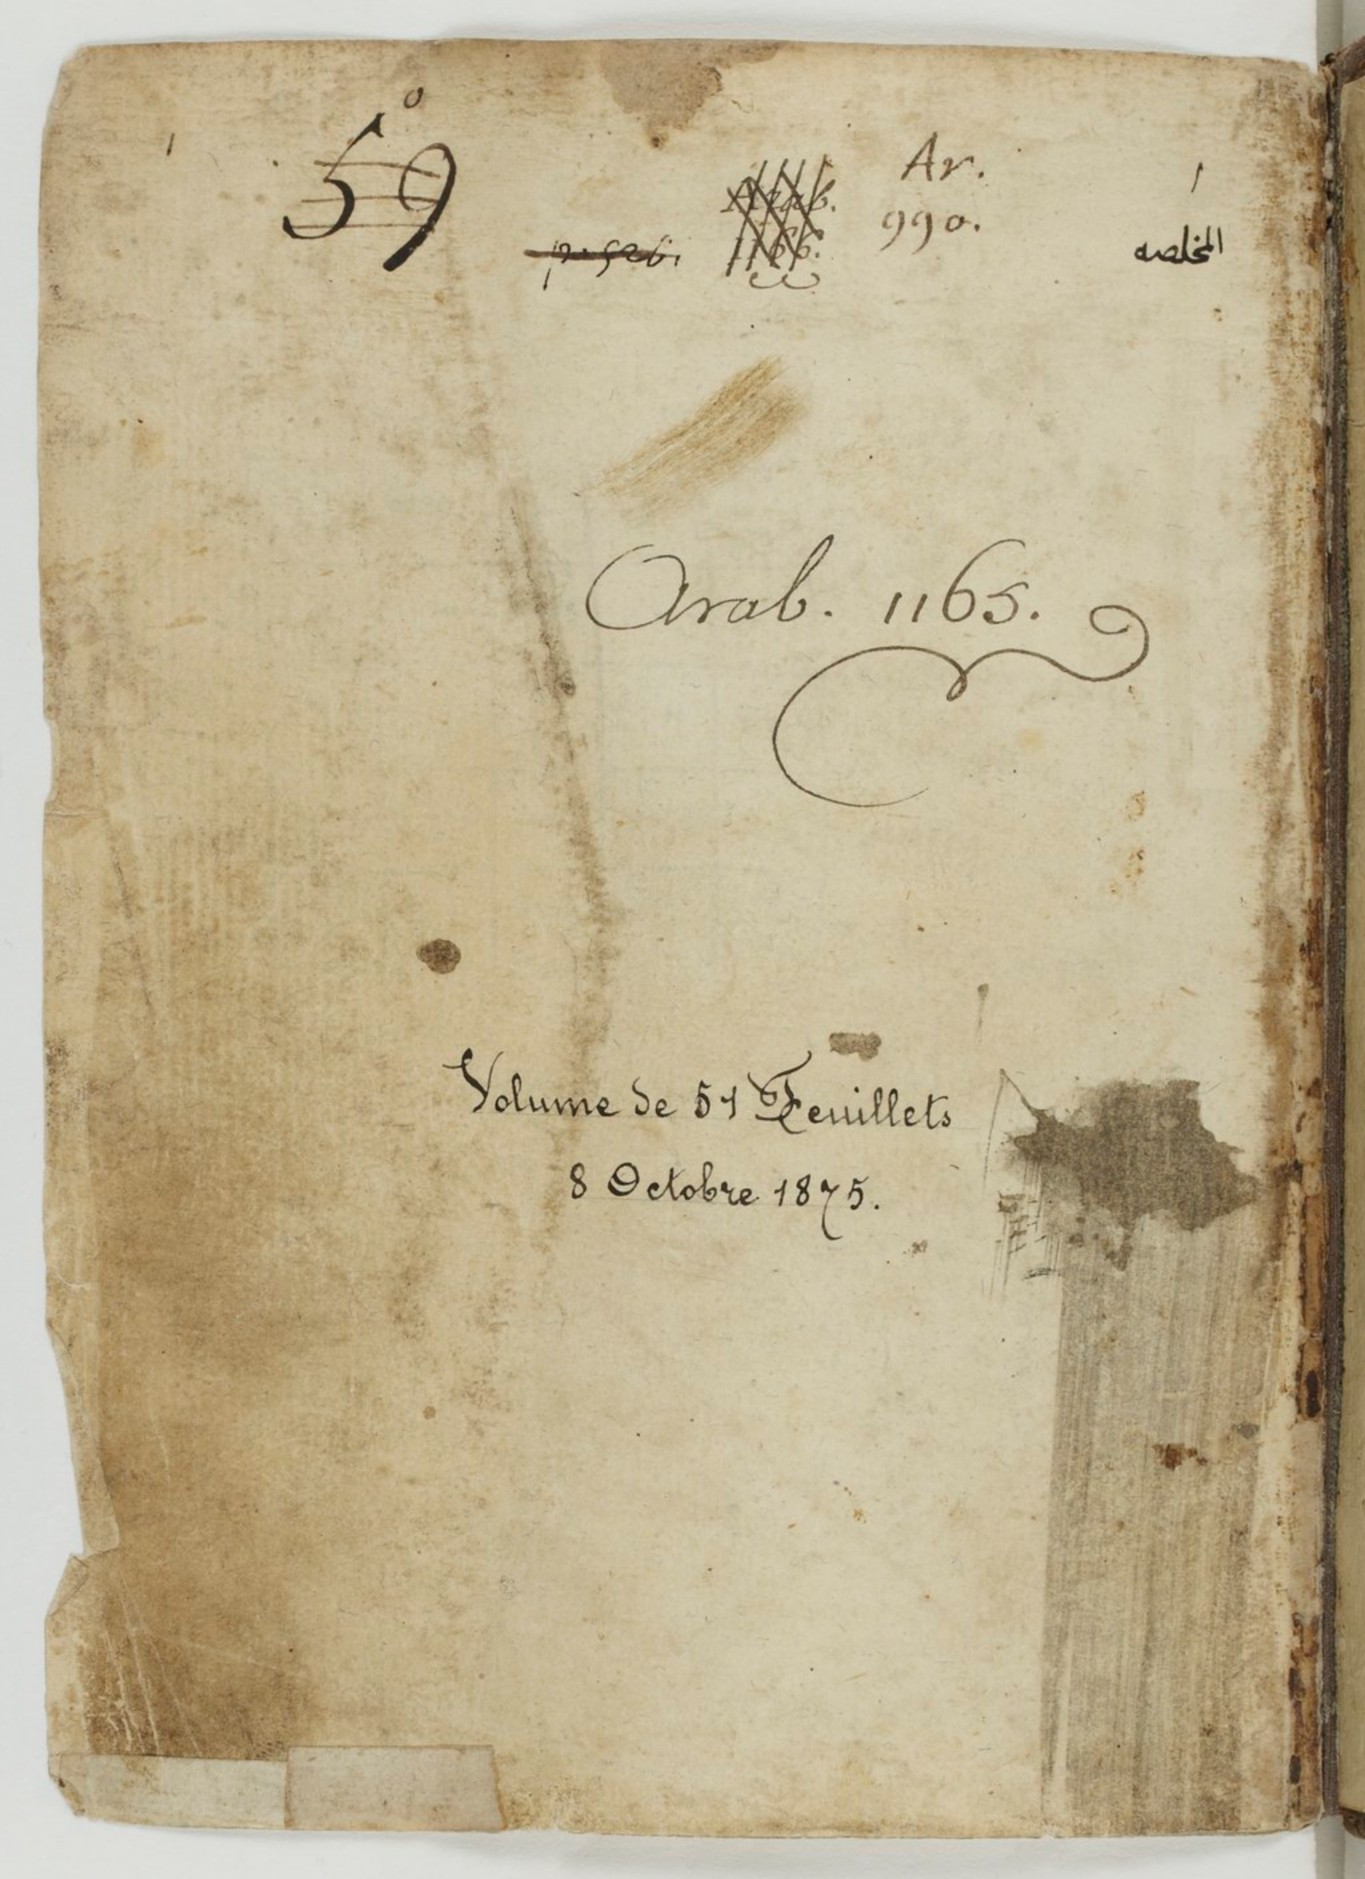 59
Ar.
990.
المخلصه
Arab. 1165.
Volume de 51 Feuillets
8 Octobre 1875.